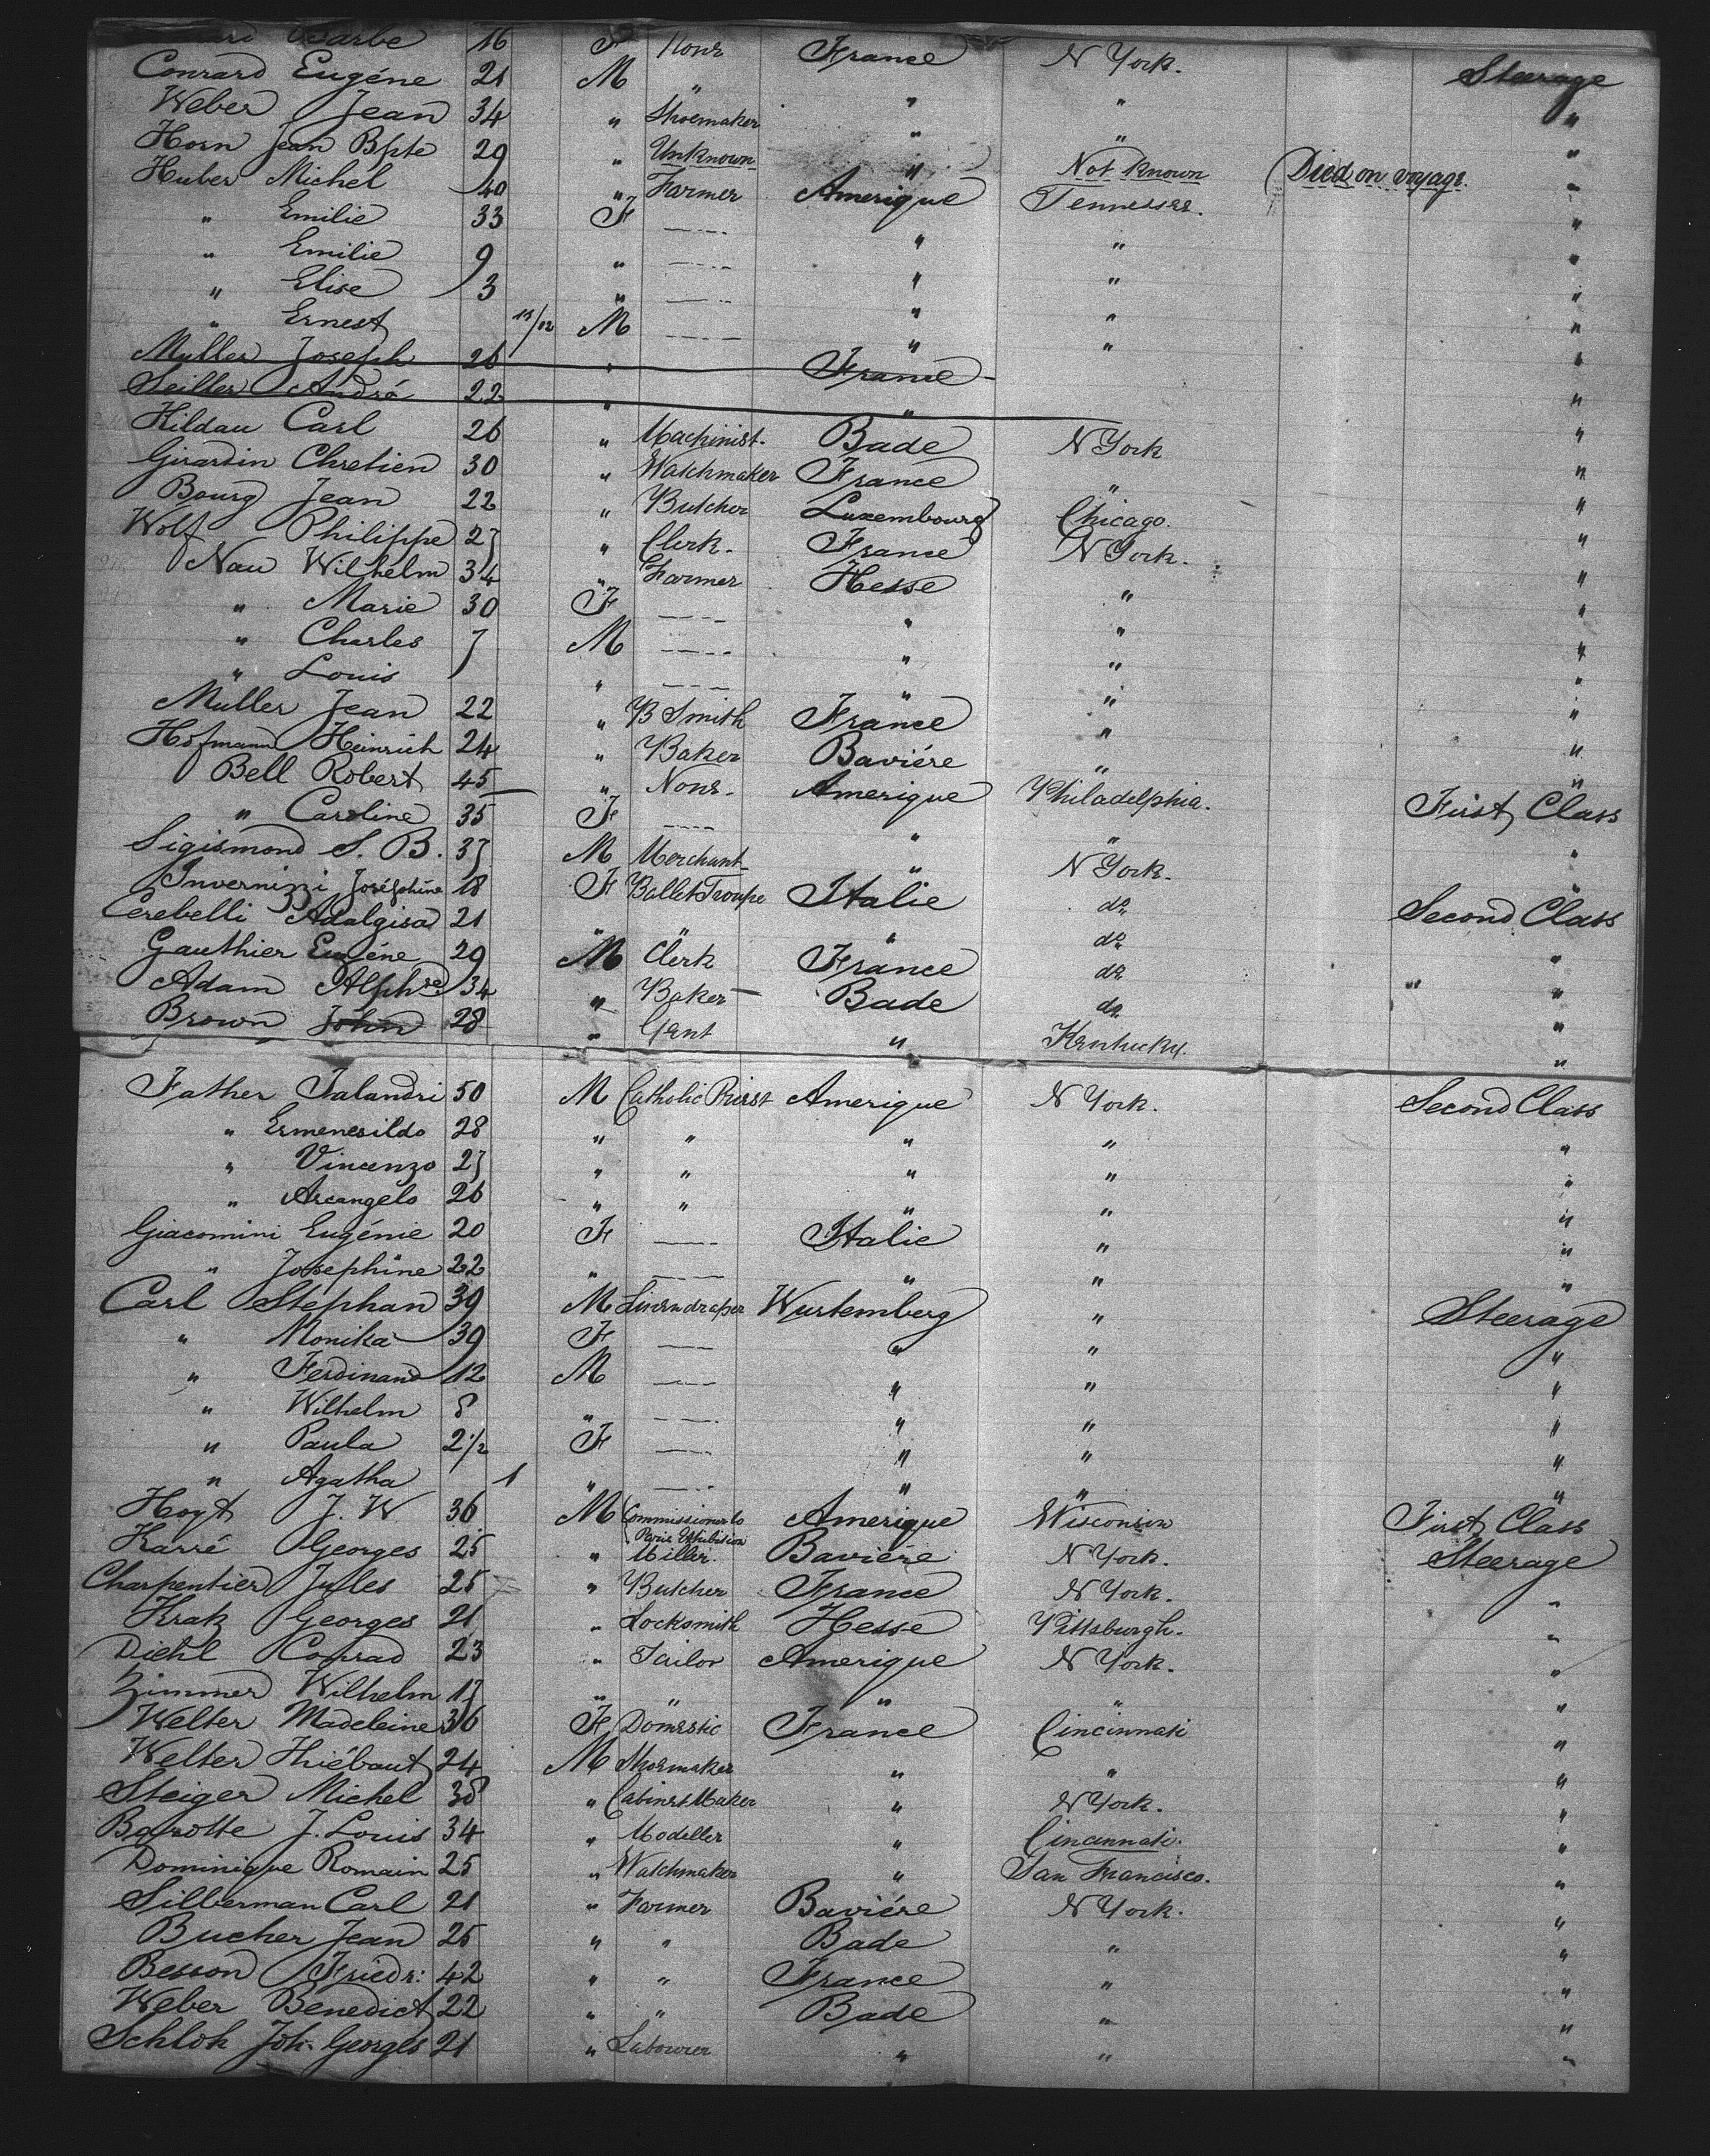 Barbe 16 F None France N York.
Conrard Eugéne 21 M " " " Steerage
Weber Jean 34 " Shoemaker " " "
Horn Jean Bpte 29 " Unknown " Not Known (Died on voyage. "
Huber Michel 40 " Farmer Amerique Tennessee. "
" Emilie 33 F — " " "
" Emilie 9 " — " " "
" Elise 3 " — " " "
" Ernest 11/12 M — " " "
Muller Joseph 26 " France "
Seiller André 22 " " "
Hildau Carl 26 " Machinist. Bade N York "
Girardin Chretien 30 " Watchmaker France " "
Bourg Jean 22 " Butcher Luxembourg Chicago. "
Wolf Philippe 27 " Clerk. France N York. "
Nau Wilhelm 34 " Farmer Hesse " "
" Marie 30 F — " " "
" Charles 7 M — " " "
" Louis " — " " "
Muller Jean 22 " B Smith France " "
Hofmann Heinrich 24 " Baker Baviére " "
Bell Robert 45 " None. Amerique Philadelphia. First Class
" Caroline 35 F — " " "
Sigismond S. B. 37 M Merchant " N York. "
Invernizzi Joséphine 18 F Ballet Troupe Italie do Second Class
Cerebelli Adalgisa 21 " " " do "
Gauthier Eugéne 29 M Clerk France do "
Adam Alphse 34 " Baker Bade do "
Brown John 28 " Gent " Kentucky. "
Father Jalandri 50 M Catholic Priest Amerique N York. Second Class
" Ermenesildo 28 " " " " "
" Vincenzo 27 " " " " "
" Arcangelo 26 " " " " "
Giacomini Eugénie 20 F — Italie " "
" Josephine 22 " — " " "
Carl Stephan 39 M Linendraper Wurtemberg " Steerage
" Monika 39 F — " " "
" Ferdinand 12 M — " " "
" Wilhelm 8 " — " " "
" Paula 2 1/2 F — " " "
" Agatha 1 " — " " "
Hoyt J. W 36 M Commissioner to Paris Exhibition Amerique Wisconsin First Class
Karré Georges 25 " Miller. Baviére N York. Steerage
Charpentier Jules 25 " Butcher France N York. "
Kratz Georges 21 " Locksmith Hesse Pittsburgh. "
Diehl Conrad 23 " Tailor Amerique N York. "
Zimmer Wilhelm 17 " " " " "
Welter Madeleine 36 F Domestic France Cincinnati "
Welter Thiébaut 24 M Shoemaker " " "
Steiger Michel 38 " Cabinet Maker " N York. "
Barotte J. Louis 34 " Modeller " Cincinnati. "
Dominique Romain 25 " Watchmaker " San Francisco. "
Silberman Carl 21 " Farmer Baviére N York. "
Bucher Jean 25 " " Bade " "
Besson Friedr: 42 " " France " "
Weber Benedict 22 " " Bade " "
Schloh Joh. Georges 21 " Labourer " " "